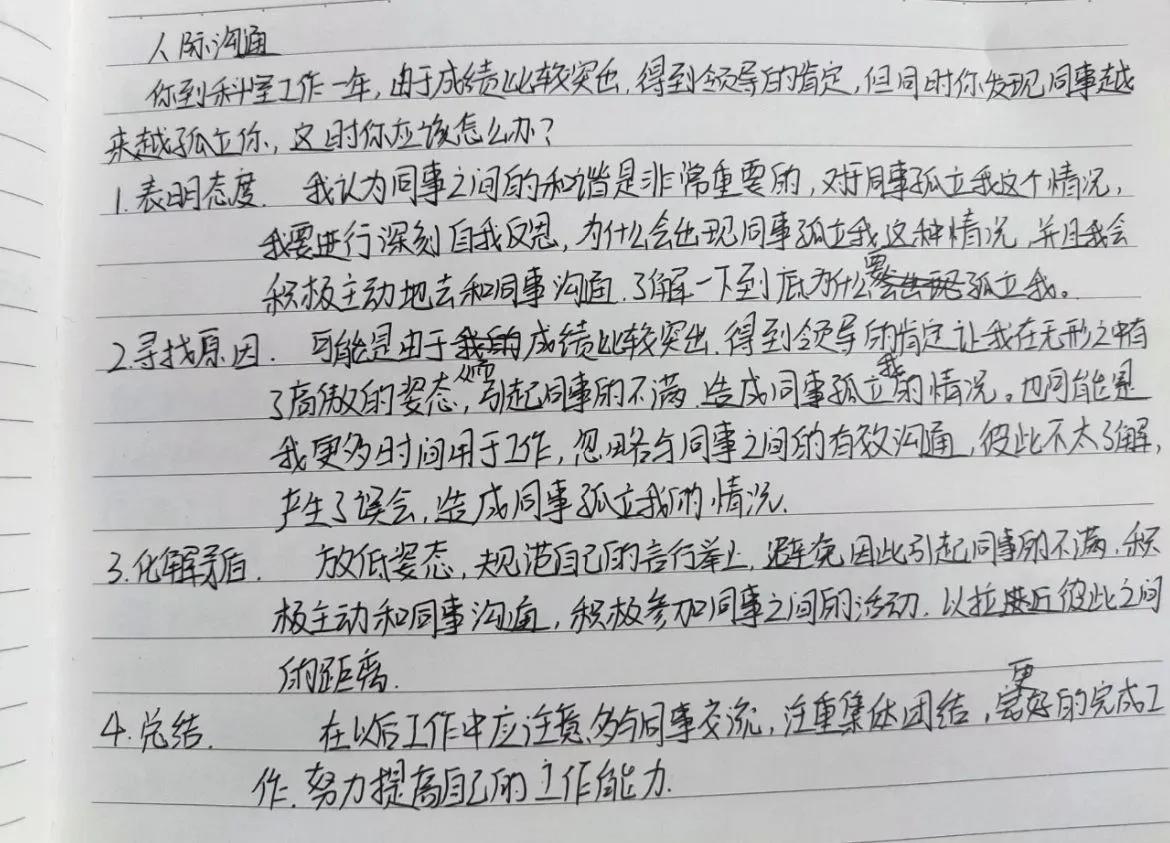 人际沟通
你到科室工作一年,由于成绩比较突出,得到领导的肯定,但同时你发现同事越
来越孤立你,这时你应该怎么办?
1.表明态度. 我认为同事之间的和谐是非常重要的,对于同事孤立我这个情况,
我要进行深刻自我反思,为什么会出现同事孤立我这种情况,并且我会
积极主动地去和同事沟通,了解一下到底为什么要孤立我。
2.寻找原因. 可能是由于成绩比较突出,得到领导的肯定让我在无形之中有
了高傲的姿态,从而引起同事的不满,造成同事孤立我的情况。也可能是
我更多时间用于工作,忽略与同事之间的有效沟通,彼此不太了解,
产生了误会,造成同事孤立我的情况.
3.化解矛盾. 放低姿态,规范自己的言行举止,避免因此引起同事的不满,积
极主动和同事沟通,积极参加同事之间的活动,以拉进近彼此之间
的距离.
4.总结. 在以后工作中应注意,多与同事交流,注重集体团结,更好的完成工
作,努力提高自己的工作能力.